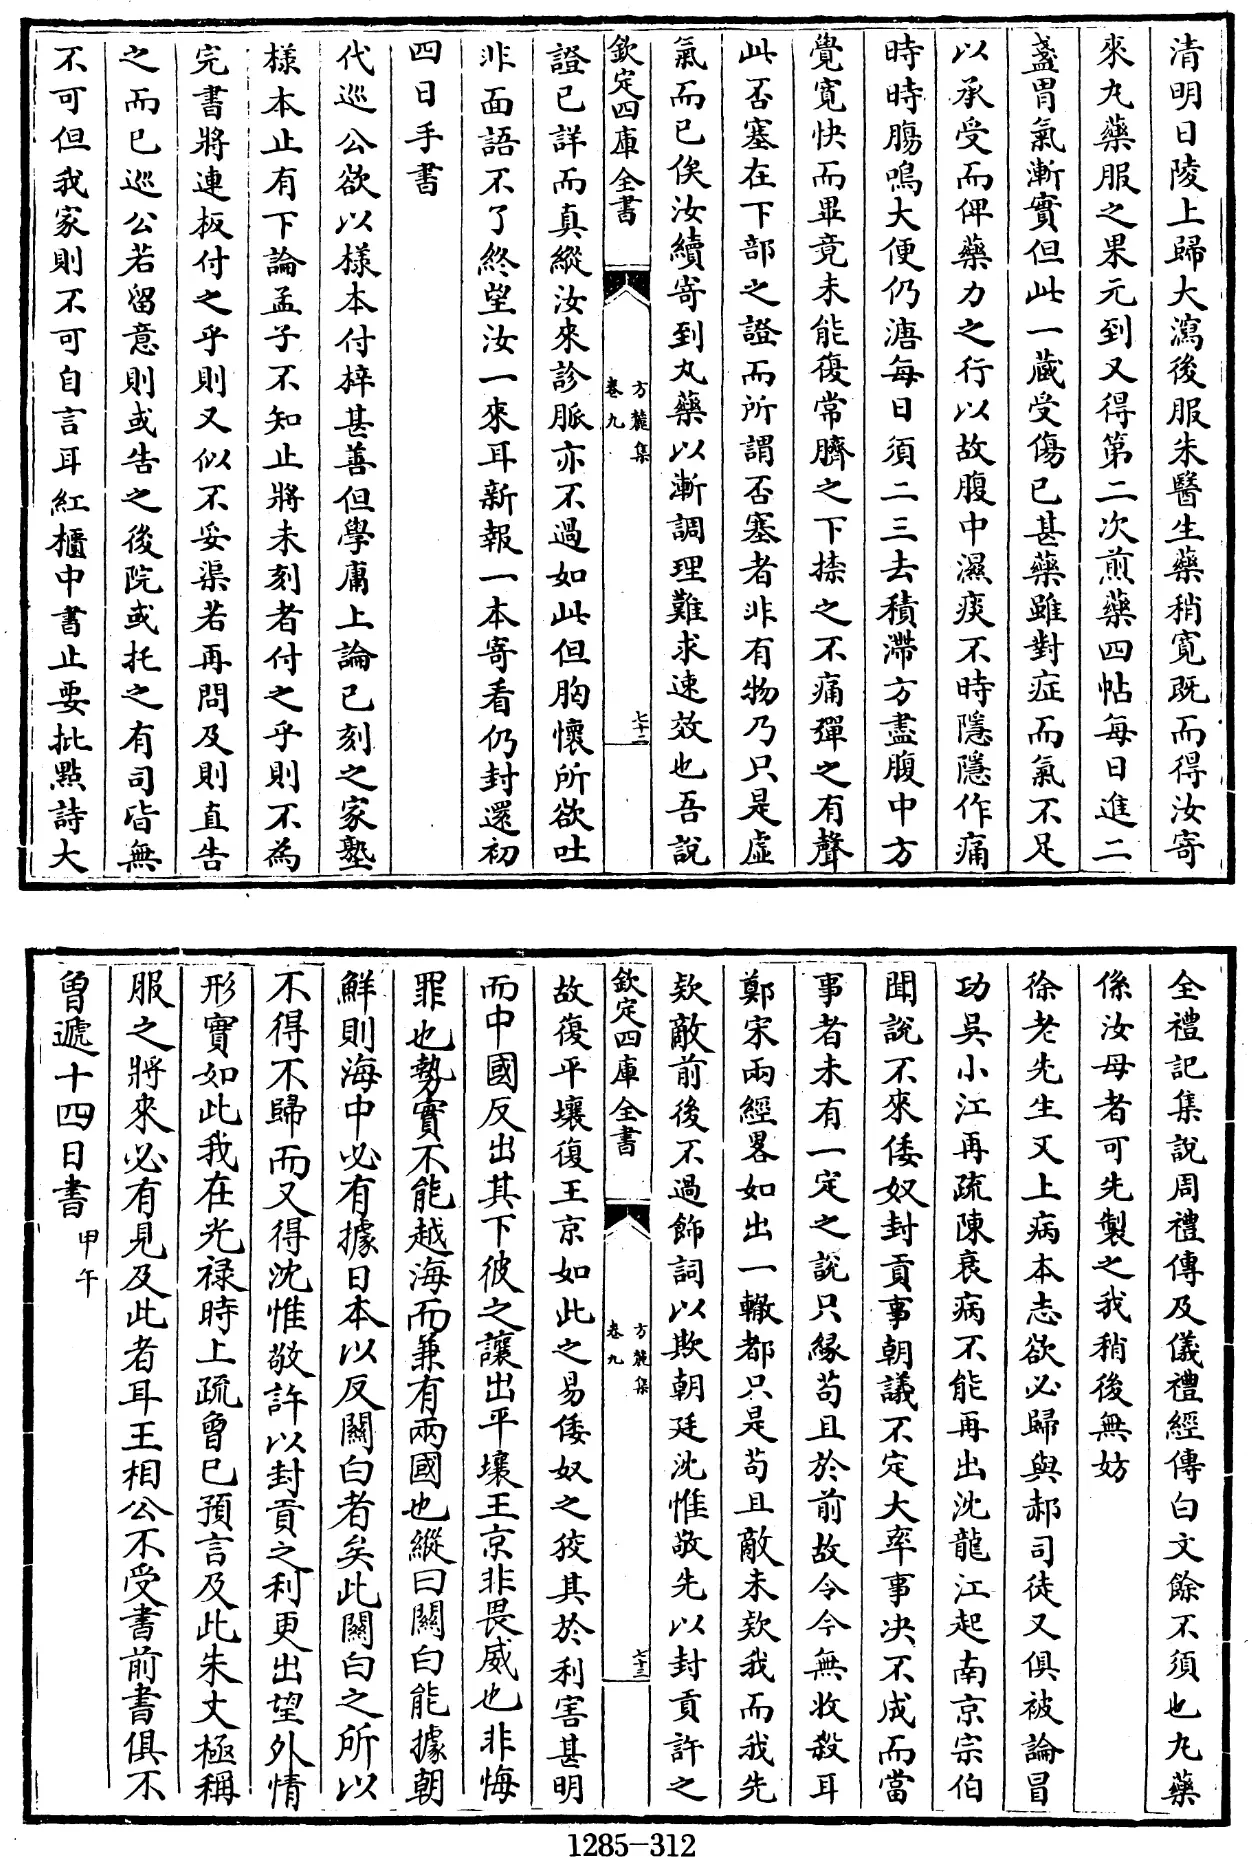 清明日陵上歸大瀉後服朱醫生藥稍寛既而得汝寄
來丸藥服之果元到又得第二次煎藥四帖每日進二
盞胃氣漸實但此一藏受傷已甚藥雖對症而氣不足
以承受而俾藥力之行以故腹中濕痰不時隱隱作痛
時時腸鳴大便仍溏每日須二三去積滯方盡腹中方
覺寛快而畢竟未能復常臍之下揉之不痛彈之有聲
此否塞在下部之證而所謂否塞者非有物乃只是虛
氣而已俟汝續寄到丸藥以漸調理難求速效也吾說
欽定四庫全書
方麓集
卷九
七十二
證已詳而真縱汝來診脈亦不過如此但胸懷所欲吐
非面語不了終望汝一來耳新報一本寄看仍封還初
四日手書
代巡公欲以樣本付梓甚善但學庸上論已刻之家塾
樣本止有下論孟子不知止將未刻者付之乎則不為
完書將連板付之乎則又似不妥渠若再問及則直告
之而已巡公若留意則或告之後院或托之有司皆無
不可但我家則不可自言耳紅櫃中書止要批點詩大
全禮記集說周禮傳及儀禮經傳白文餘不須也丸藥
係汝母者可先製之我稍後無妨
徐老先生又上病本志欲必歸與郝司徒又俱被論冒
功吳小江再疏陳衰病不能再出沈龍江起南京宗伯
聞說不來倭奴封貢事朝議不定大率事决不成而當
事者未有一定之說只緣苟且於前故令今無收殺耳
鄭宋兩經畧如出一轍都只是苟且敵未欵我而我先
欵敵前後不過飾詞以欺朝廷沈惟敬先以封貢許之
欽定四庫全書
方麓集
卷九
七十三
故復平壤復王京如此之易倭奴之狡其於利害甚明
而中國反出其下彼之讓出平壤王京非畏威也非悔
罪也勢實不能越海而兼有兩國也縱曰關白能據朝
鮮則海中必有據日本以反關白者矣此關白之所以
不得不歸而又得沈惟敬許以封貢之利更出望外情
形實如此我在光禄時上疏曾已預言及此朱丈極稱
服之將來必有見及此者耳王相公不受書前書俱不
曾遞十四日書甲午
1285-312